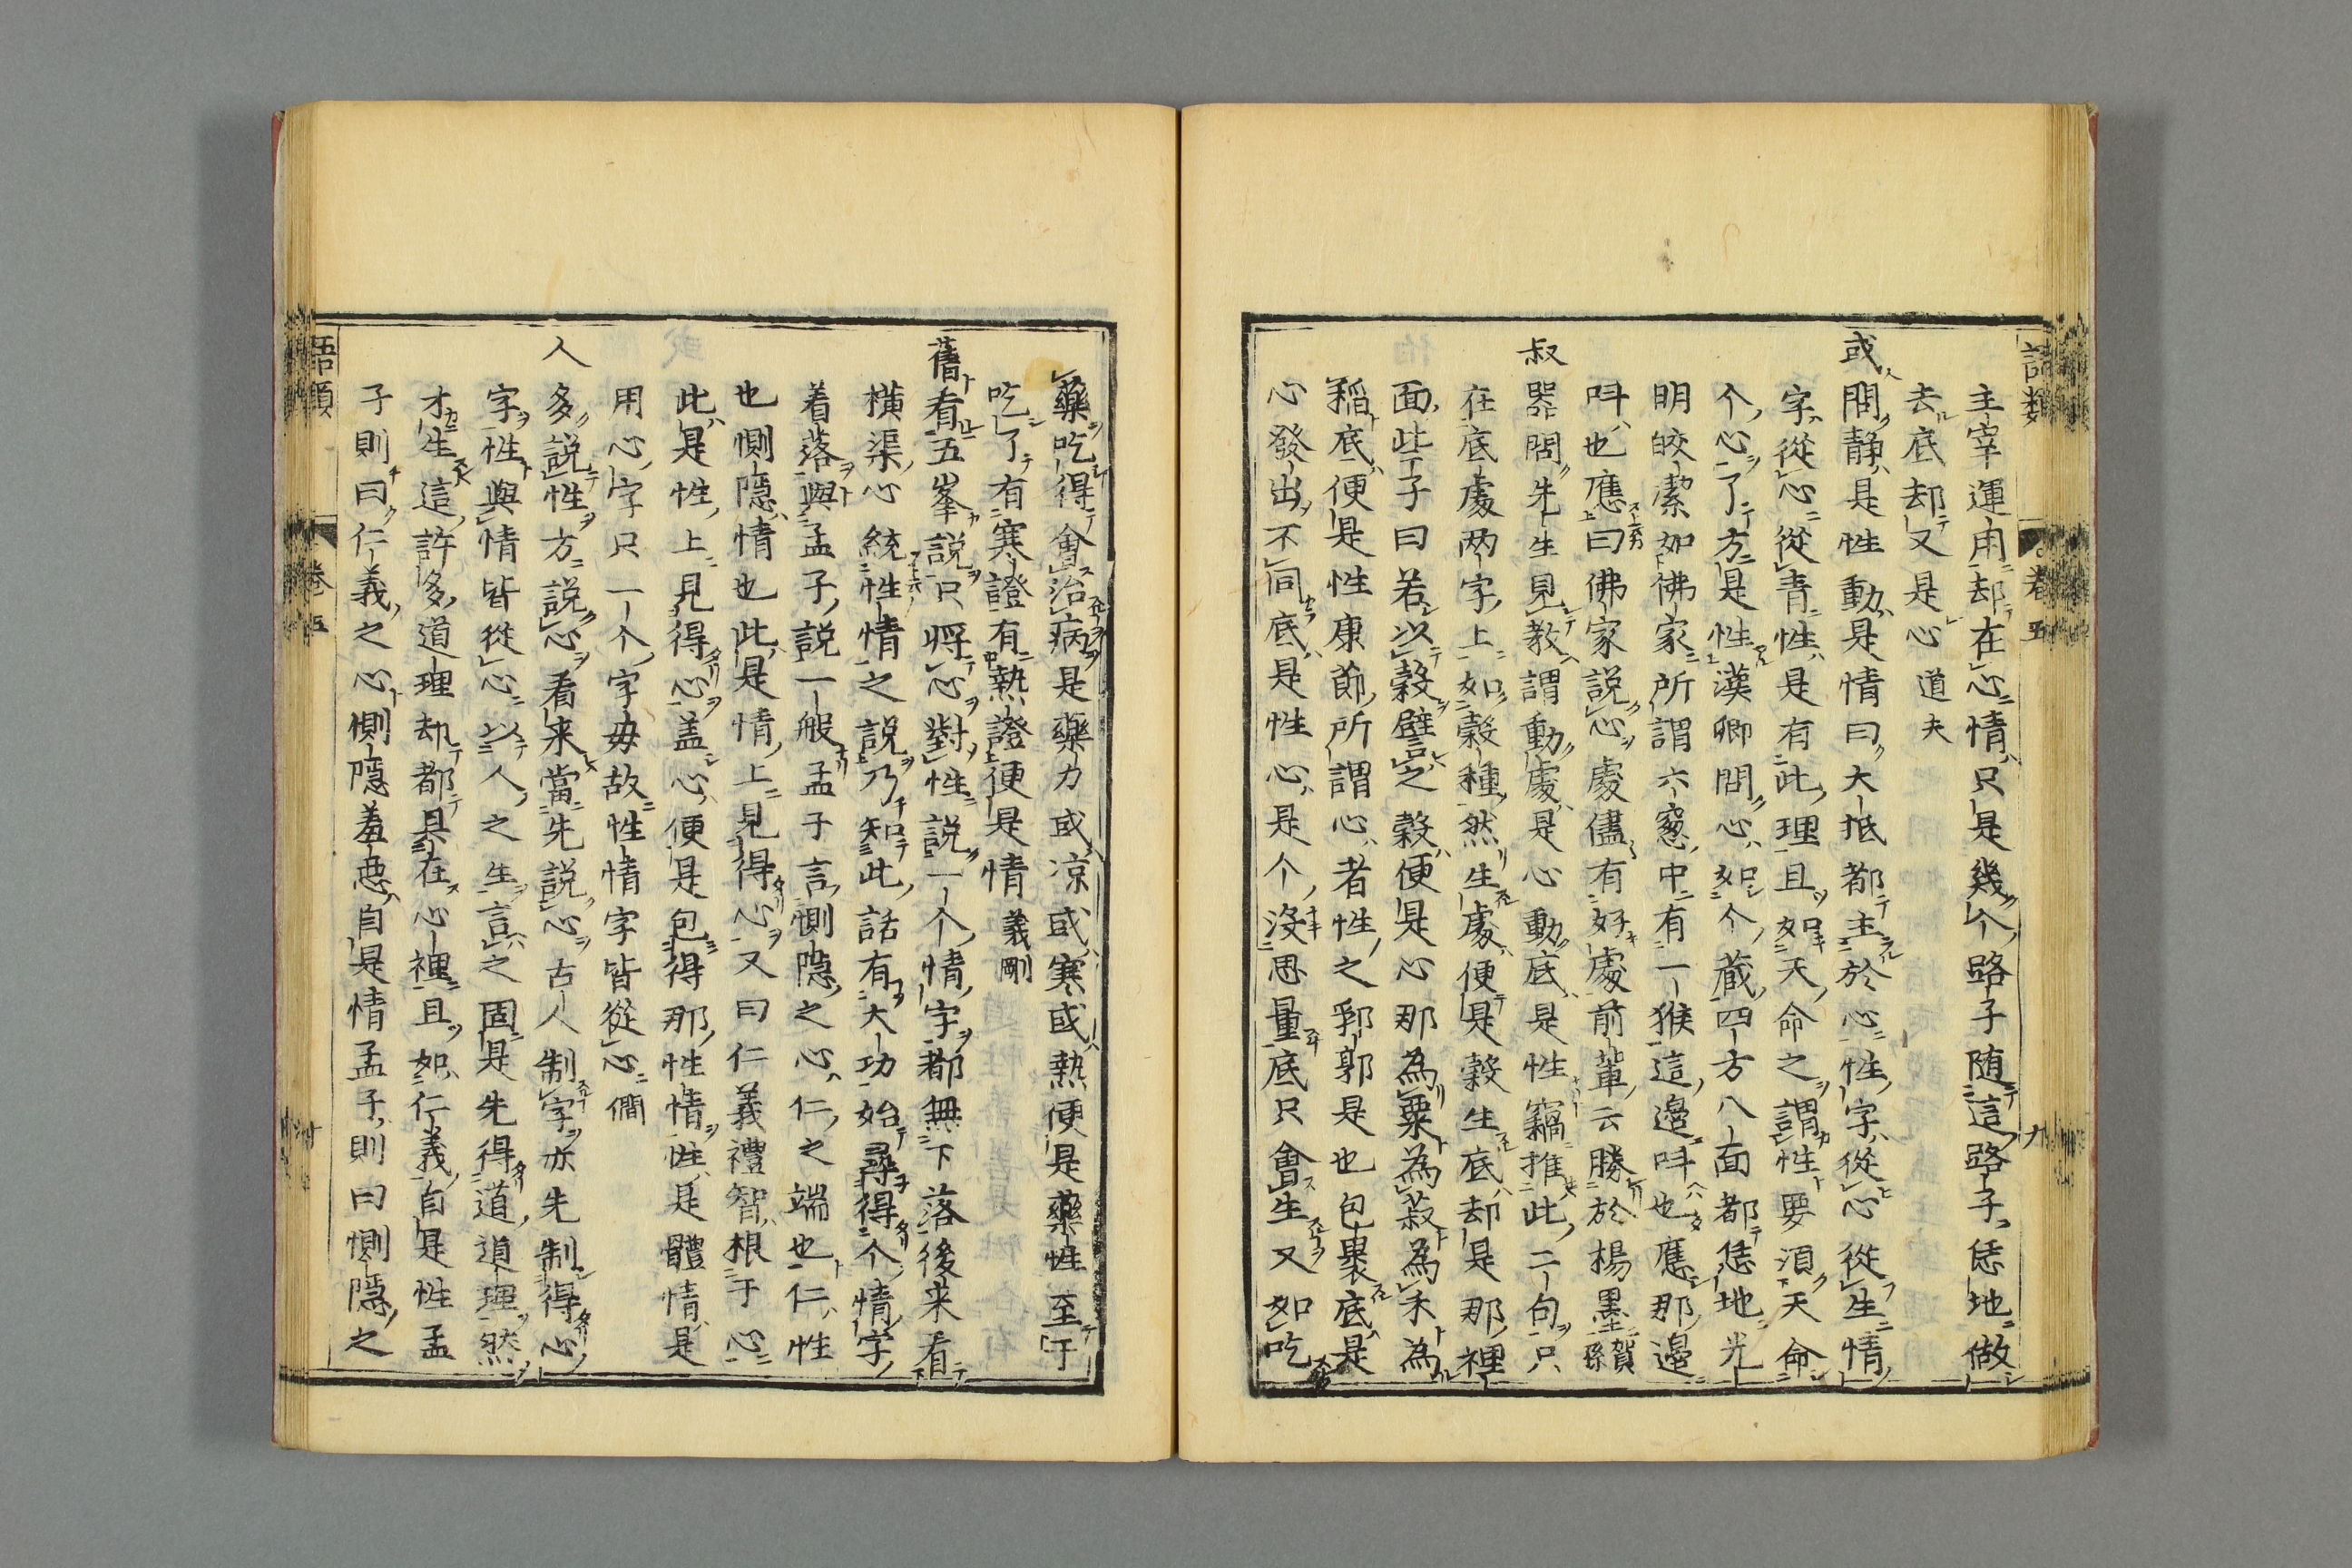 語類
卷五
九
主宰運用却在心情只是幾个路子随這路子恁地做
去底却又是心道夫
或問静是性動是情曰大抵都主於心性字從心從生情
字從心從青性是有此理且如天命之謂性要須天命
个心了方是性漢卿問心如个藏四方八面都恁地光
明皎潔如佛家所謂六窻中有一猴這邉呌也應那邉
呌也應曰佛家說心處儘有好處前輩云勝於楊墨賀孫
叔器問先生見教謂動處是心動底是性竊推此二句只
在底處两字上如穀種然生處便是穀生底却是那裡
面些子曰若以穀譬之穀便是心那為粟為菽為禾為
稻底便是性康節所謂心者性之郛郭是也包裹底是
心發出不同底是性心是个沒思量底只會生又如吃
藥吃得會治病是藥力或凉或寒或熱便是藥性至于
吃了有寒證有熱證便是情義剛
舊看五峯說只將心對性說一个情字都無下落後来看
橫渠心統性情之說乃知此話有大功始尋得个情字
着落與孟子說一般孟子言惻隱之心仁之端也仁性
也惻隱情也此是情上見得心又曰仁義禮智根于心
此是性上見得心盖心便是包得那性情性是體情是
用心字只一个字毋故性情字皆從心僩
人多說性方說心看来當先說心古人制字亦先制得心
字性與情皆從心以人之生言之固是先得道道理然
才生這許多道理却都具在心裡且如仁義自是性孟
子則曰仁義之心惻隱羞惡自是情孟子則曰惻隱之
語類
卷五
十